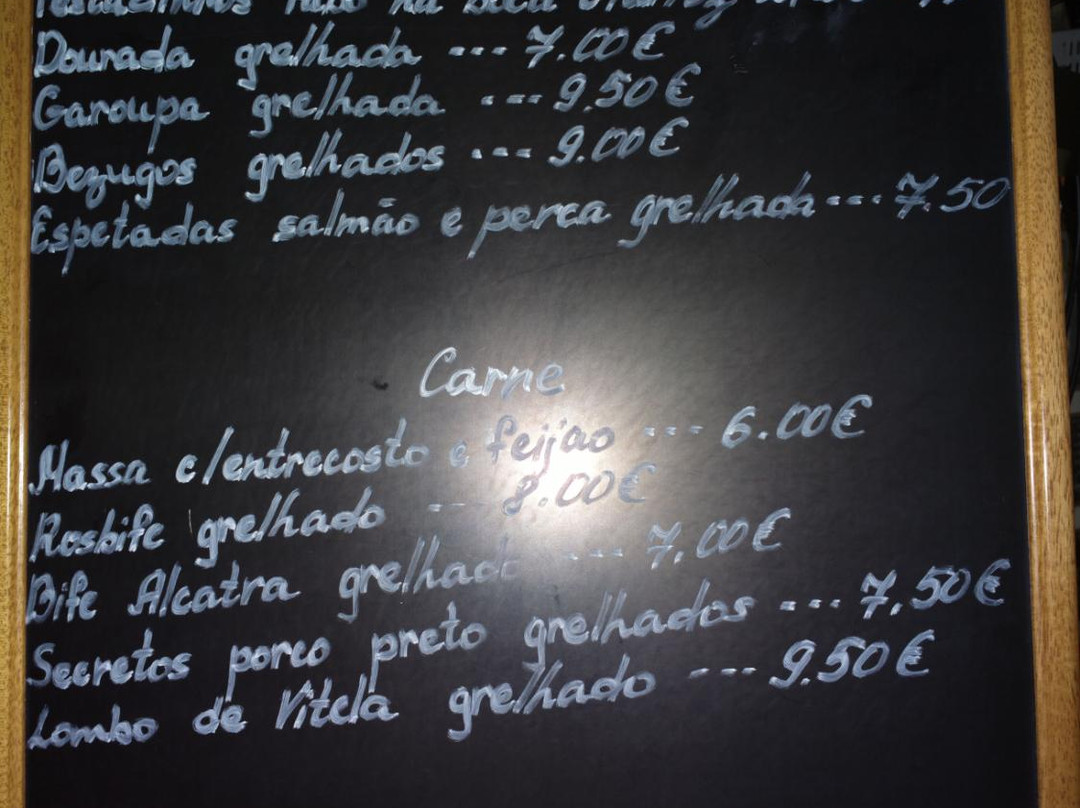 rabo na boca
Dourada grelhada --- 7.00€
Garoupa grelhada --- 9.50€
Bezugos grelhados --- 9.00€
Espetadas salmão e perca grelhada --- 7.50
Carne
Massa c/entrecosto e feijao --- 6.00€
Rosbife grelhado --- 8.00€
Bife Alcatra grelhado --- 7.00€
Secretos porco preto grelhados --- 7,50€
Lombo de Vitela grelhado --- 9.50€